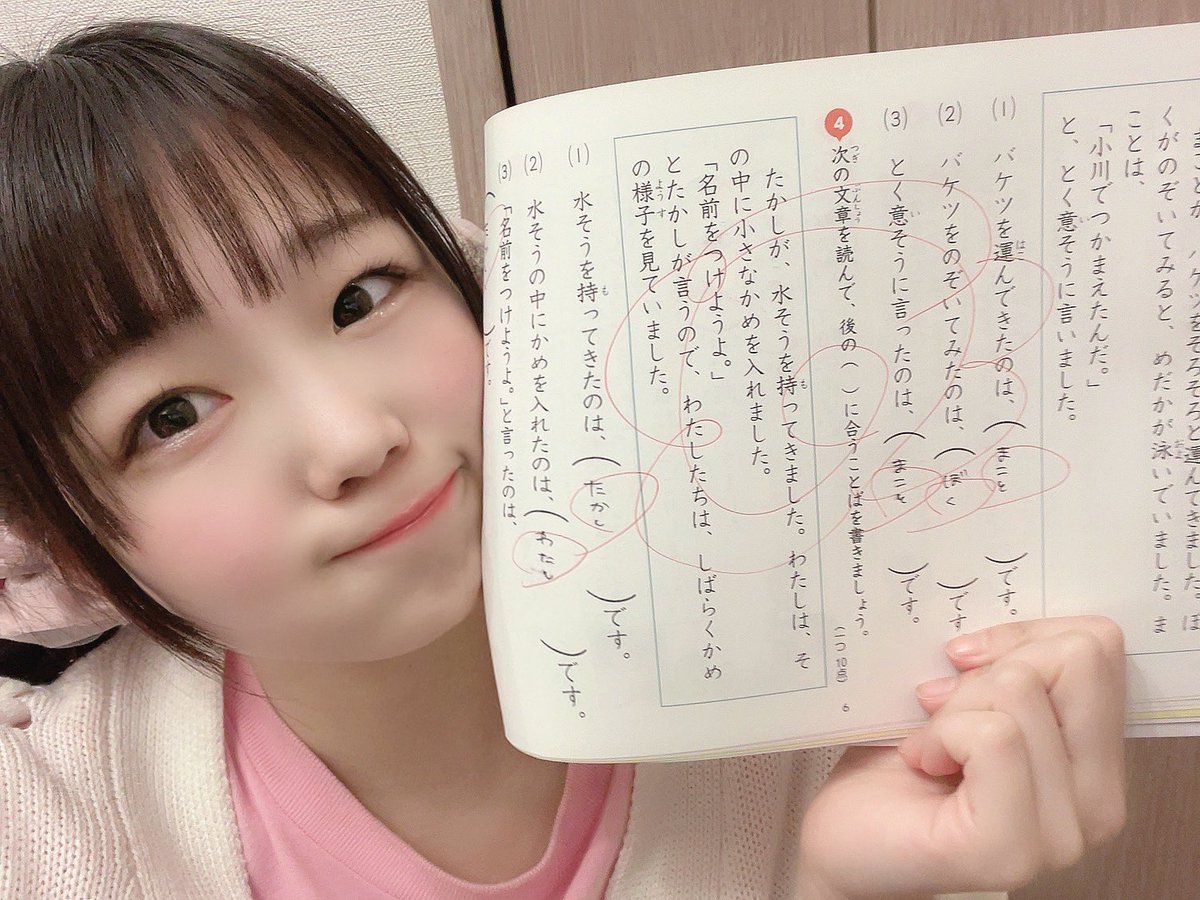 まことが、バケツをそろそろと運んできました。ぼ
くがのぞいてみると、めだかが泳いでいました。ま
ことは、
「小川でつかまえたんだ。」
と、とく意そうに言いました。
(1) バケツを運んできたのは、(まこと)です。
(2) バケツをのぞいてみたのは、(ぼく)です
(3) とく意そうに言ったのは、(まこと)です。
4 次の文章を読んで、後の( )に合うことばを書きましょう。(一つ10点)
たかしが、水そうを持ってきました。わたしは、そ
の中に小さなかめを入れました。
「名前をつけようよ。」
とたかしが言うので、わたしたちは、しばらくかめ
の様子を見ていました。
(1) 水そうを持ってきたのは、(たかし)です。
(2) 水そうの中にかめを入れたのは、(わたし)です。
(3) 「名前をつけようよ。」と言ったのは、
( )です。
6